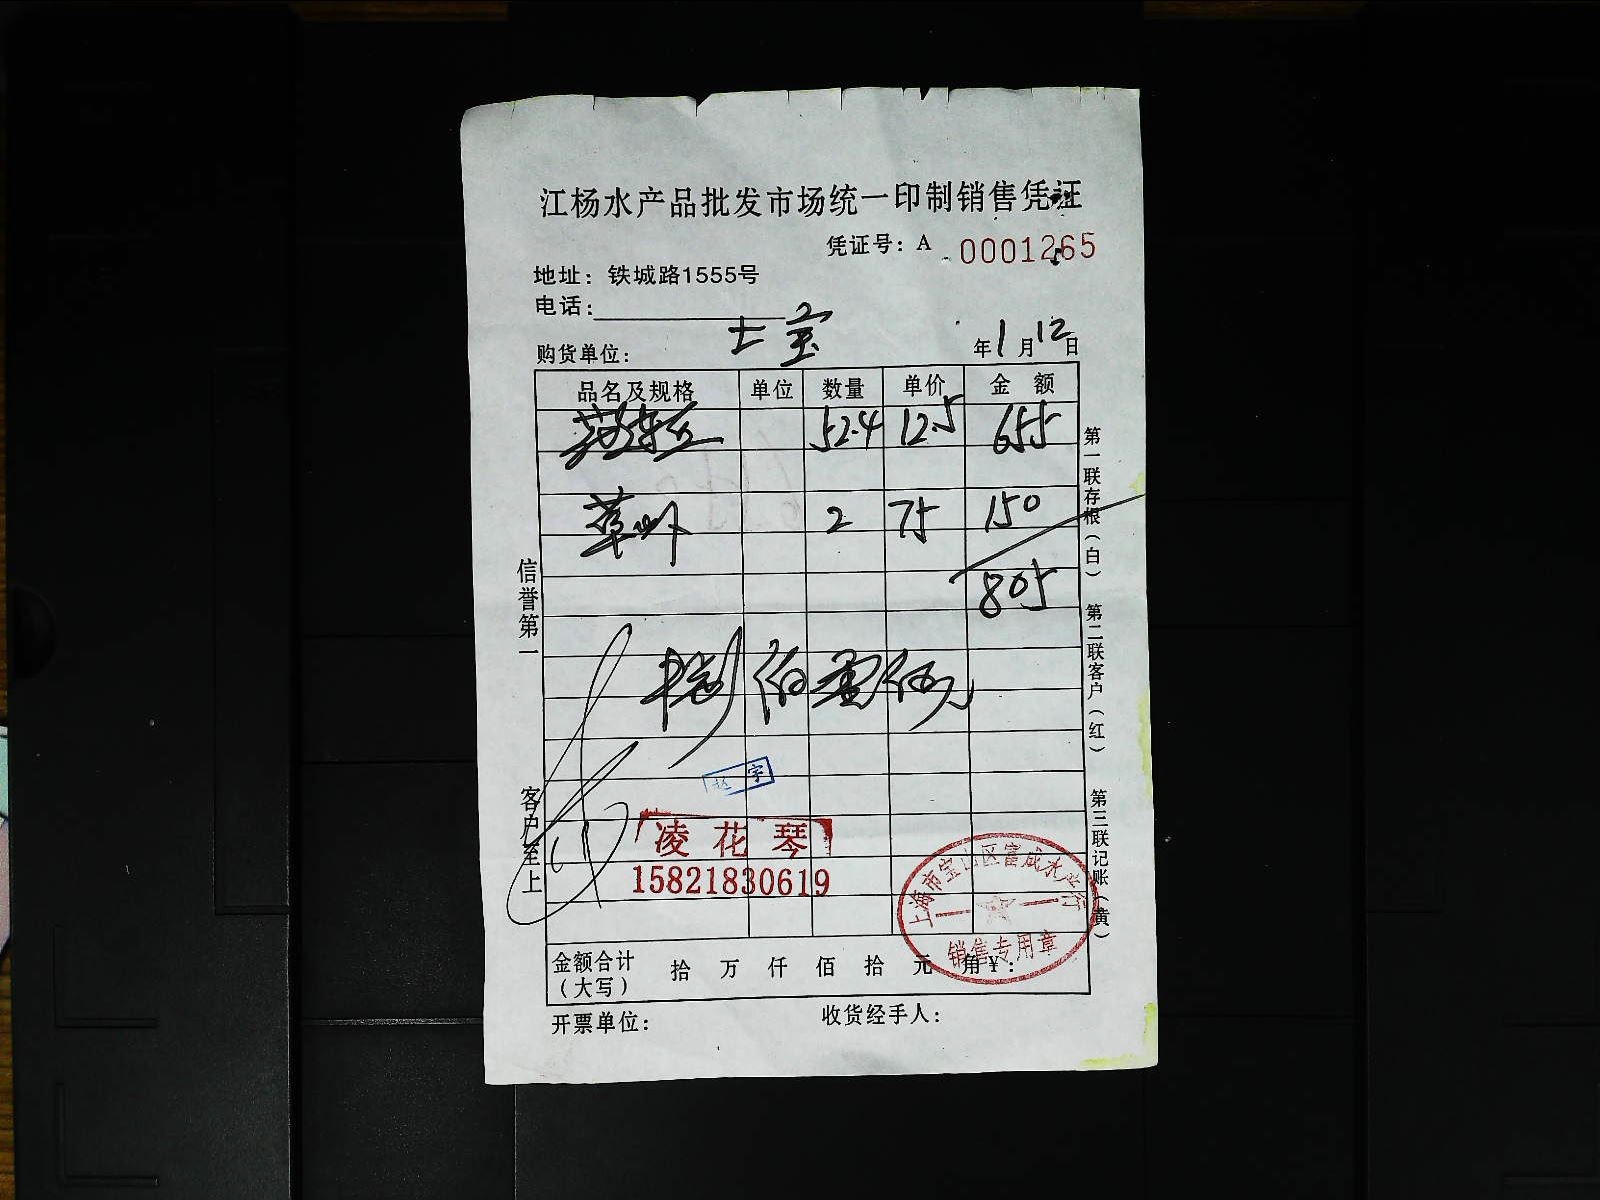 江杨水产品批发市场统一印制销售凭证
凭证号：A 0001265
地址：铁城路1555号
电话：
购货单位： 七宝 年1月12日
品名及规格 单位 数量 单价 金 额
52.4 12.5 655
草虾 2 75 150
805
捌佰零伍元
赵宇
凌花琴
15821830619
上海市宝山区富成水产行
销售专用章
金额合计（大写） 拾 万 仟 佰 拾 元 角 ￥：
开票单位： 收货经手人：
信誉第一
客户至上
第一联存根（白）
第二联客户（红）
第三联记账（黄）